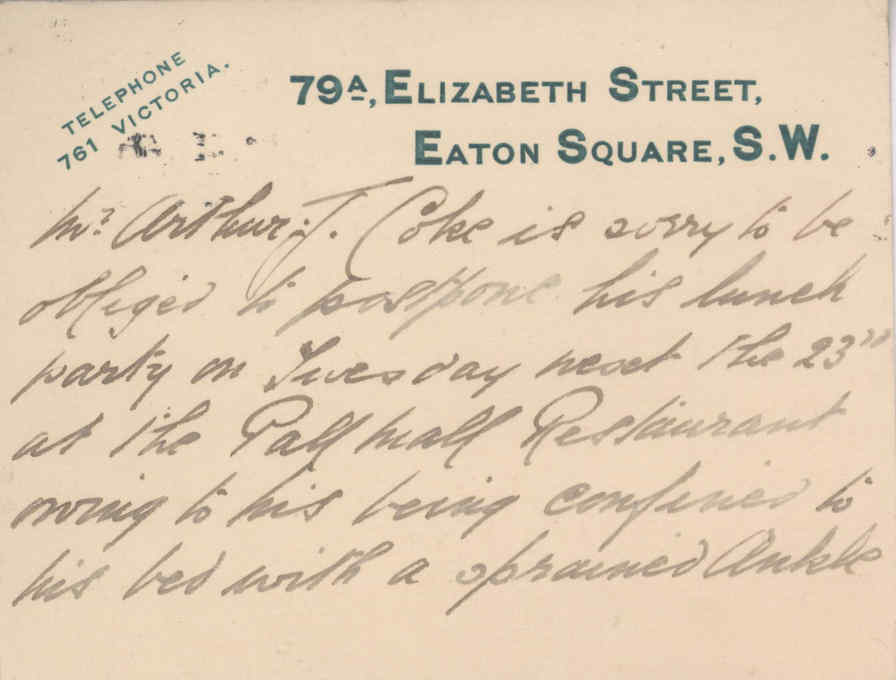 TELEPHONE
761 VICTORIA.
79A, ELIZABETH STREET,
EATON SQUARE, S.W.
Mr. Arthur J. Coke is sorry to be
obliged to postpone his lunch
party on Tuesday next the 23rd
at the Pall Mall Restaurant
owing to his being confined to
his bed with a sprained Ankle